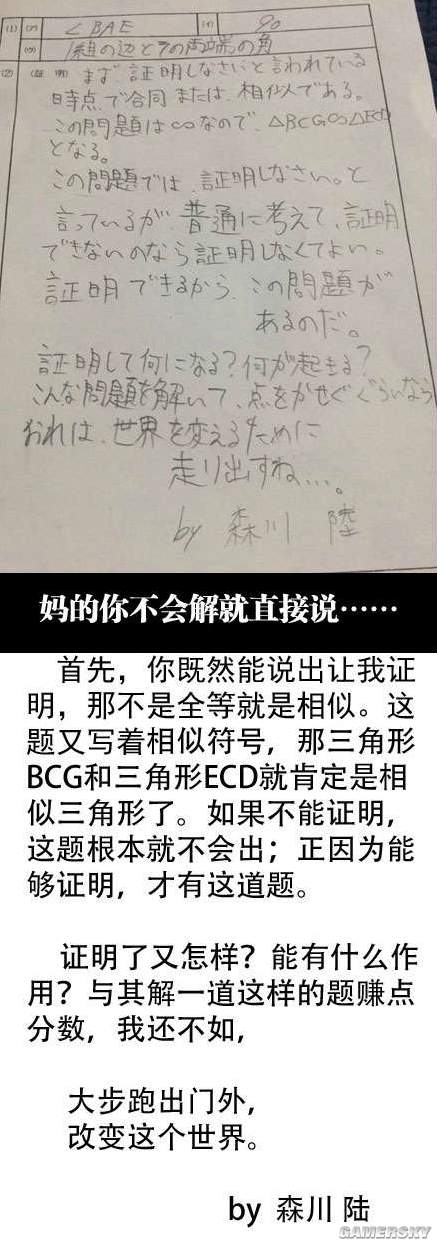 (1) (ア) ∠BAE (イ) 90
(ウ) 1組の辺とその両端の角
(2) (証明) まず、証明しなさいと言われている
時点で合同または、相似である。
この問題は∽なので、△BCG∽△ECD
となる。
この問題では、証明しなさい。と
言っているが、普通に考えて、証明
できないのなら証明しなくてよい。
証明できるから、この問題が
あるのだ。
証明して何になる?何が起きる?
こんな問題を解いて、点をかせぐぐらいなら
おれは、世界を変えるために
走り出すね…。
by 森川 陸
妈的你不会解就直接说……
首先，你既然能说出让我证
明，那不是全等就是相似。这
题又写着相似符号，那三角形
BCG和三角形ECD就肯定是相
似三角形了。如果不能证明，
这题根本就不会出；正因为能
够证明，才有这道题。
证明了又怎样？能有什么作
用？与其解一道这样的题赚点
分数，我还不如，
大步跑出门外，
改变这个世界。
by 森川 陆
GAMERSKY